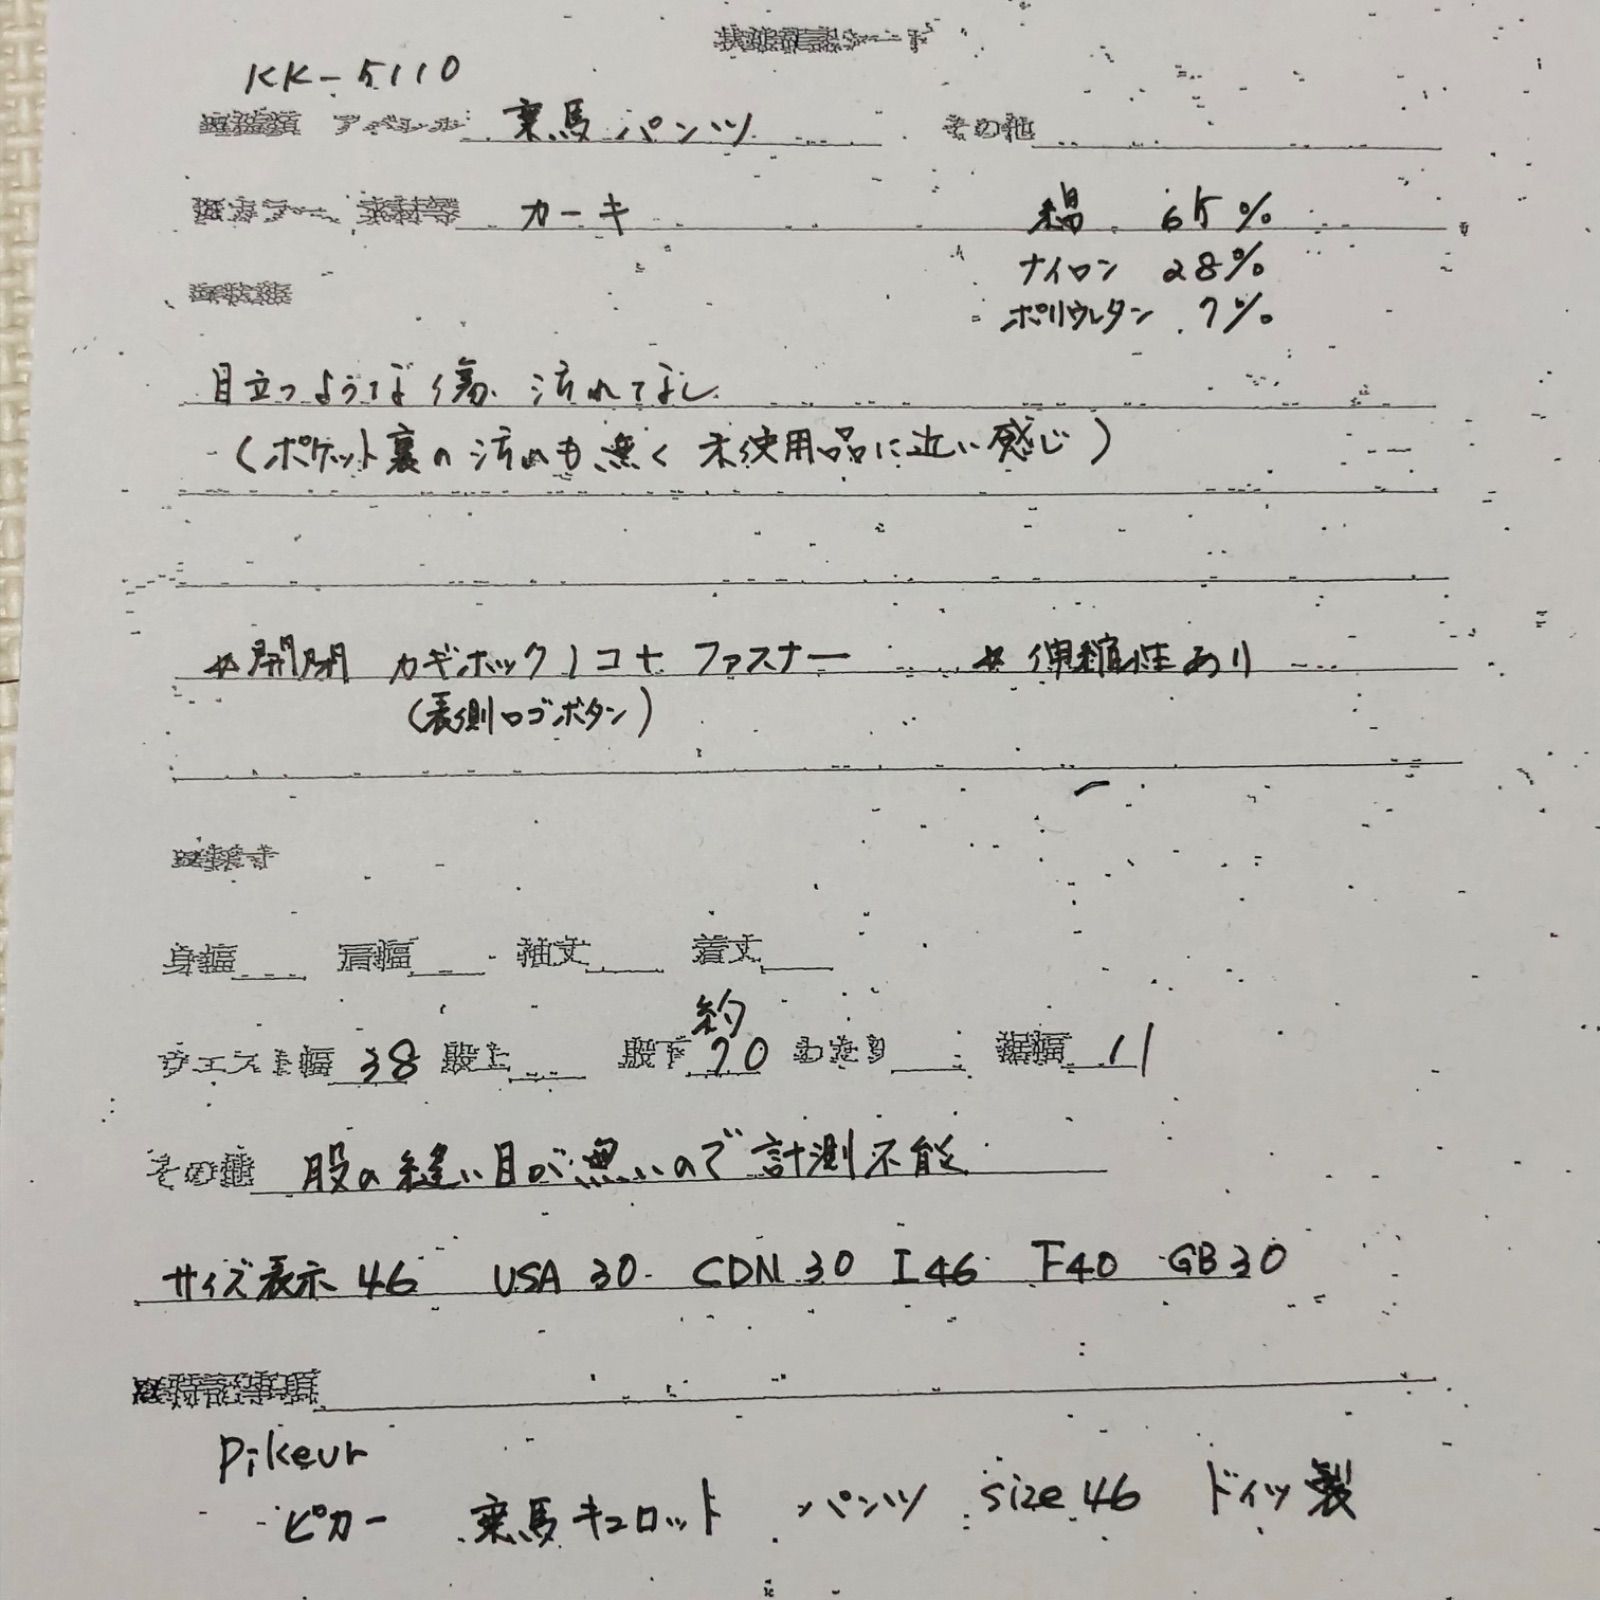 状態確認シート
KK-5110
アパレル 乗馬パンツ その他
カラー、素材等 カーキ 綿 65%
ナイロン 28%
ポリウレタン 7%
状態
目立つような傷、汚れてなし
(ポケット裏の汚れも無く 未使用品に近い感じ)
*開閉 カギホック1コ+ファスナー *伸縮性あり
(表側ロゴボタン)
採寸
身幅 肩幅 袖丈 着丈
約
ウエスト幅 38 股上 股下 70 わたり 裾幅 11
その他 股の縫い目が無いので計測不能
サイズ表示 46 USA 30 CDN 30 I46 F40 GB30
特記事項
Pikeur
ピカー 乗馬キュロット パンツ size 46 ドイツ製